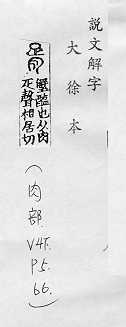 說文解字
大徐本
胥
蟹醢也从肉
疋聲相居切
(肉部.
V4下.
P.5.
66.)